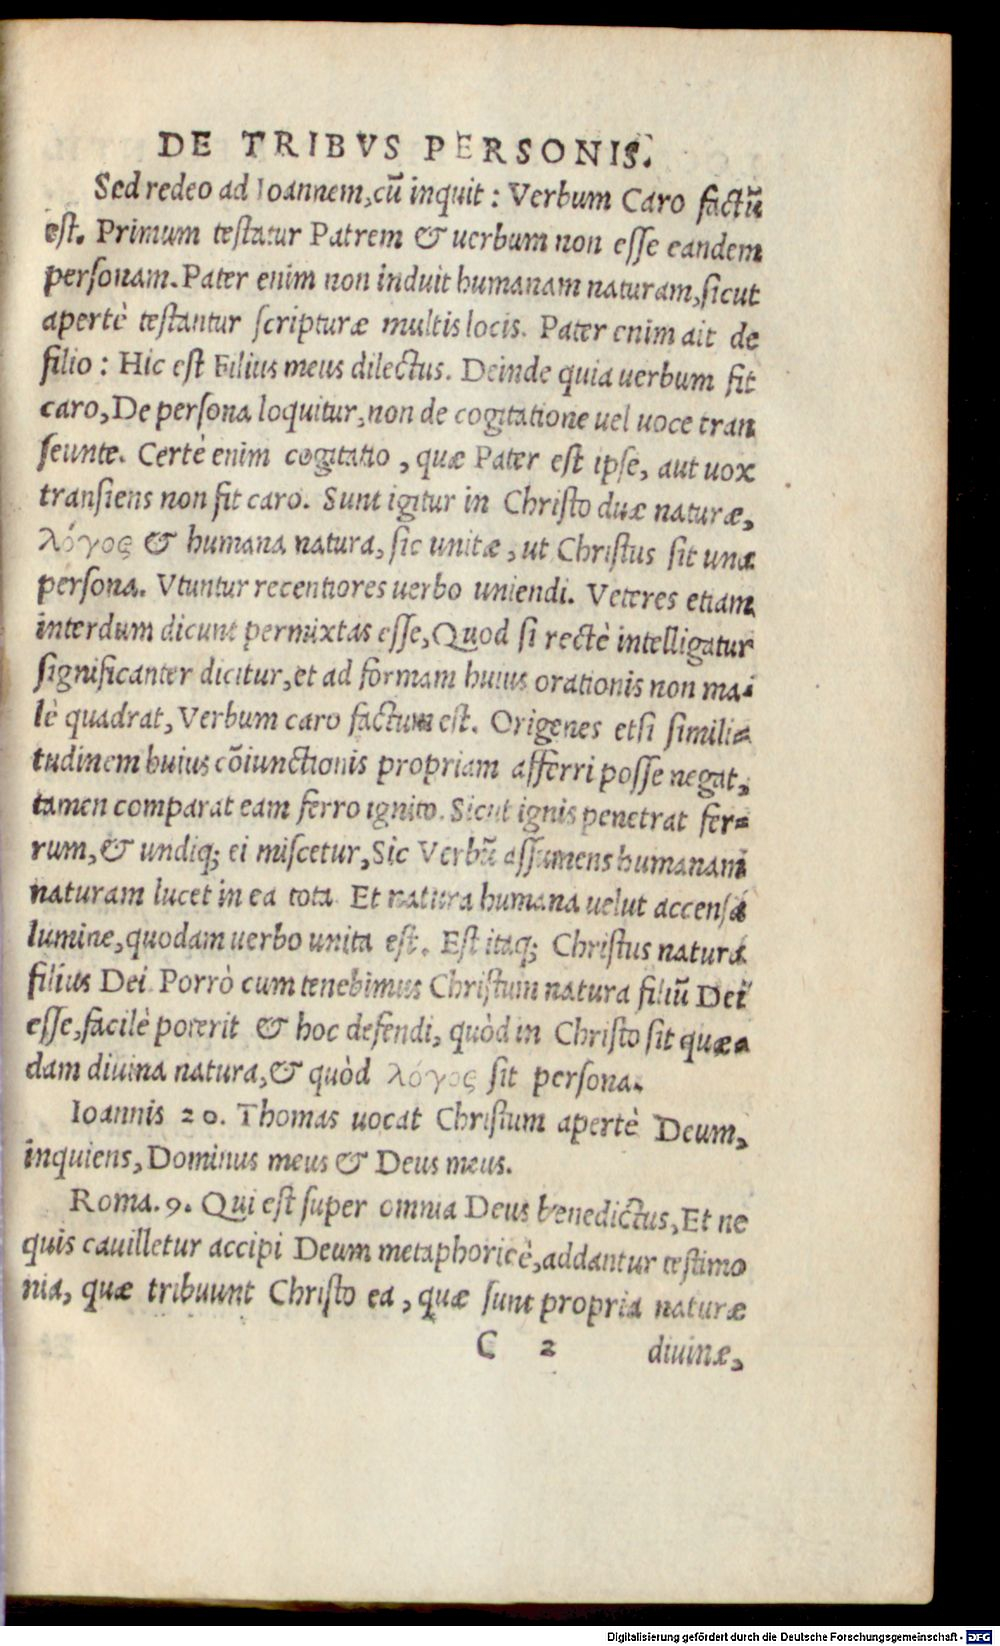 DE TRIBVS PERSONIS.
Sed redeo ad Ioannem, cũ inquit : Verbum Caro factũ
est. Primum testatur Patrem & uerbum non esse eandem
personam. Pater enim non induit humanam naturam, sicut
apertè testantur scripturæ multis locis. Pater enim ait de
filio : Hic est Filius meus dilectus. Deinde quia uerbum fit
caro, De persona loquitur, non de cogitatione uel uoce tran
seunte. Certè enim cogitatio , quæ Pater est ipse, aut uox
transiens non fit caro. Sunt igitur in Christo duæ naturæ,
λόγος & humana natura, sic unitæ , ut Christus sit una
persona. Vtuntur recentiores uerbo uniendi. Veteres etiam
interdum dicunt permixtas esse, Quod si rectè intelligatur
significanter dicitur, et ad formam huius orationis non ma-
lè quadrat, Verbum caro factum est. Origenes etsi simili-
tudinem huius cõiunctionis propriam afferri posse negat,
tamen comparat eam ferro ignito. Sicut ignis penetrat fer-
rum, & undiq; ei miscetur, Sic Verbũ assumens humanam
naturam lucet in ea tota. Et natura humana uelut accensa
lumine, quodam uerbo unita est. Est itaq; Christus natura
filius Dei. Porrò cum tenebimus Christum natura filiũ Dei
esse, facilè poterit & hoc defendi, quòd in Christo sit quæ-
dam diuina natura, & quòd λόγος sit persona.
Ioannis 20. Thomas uocat Christum apertè Deum,
inquiens, Dominus meus & Deus meus.
Roma. 9. Qui est super omnia Deus benedictus, Et ne
quis cauilletur accipi Deum metaphoricè, addantur testimo
nia, quæ tribuunt Christo ea , quæ sunt propria naturæ
C 2 diuinæ,
Digitalisierung gefördert durch die Deutsche Forschungsgemeinschaft - DFG